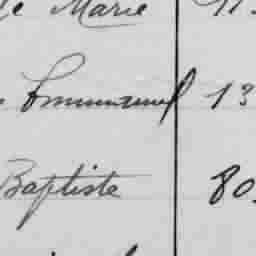 Marie
Emmanuel 13
Baptiste 80